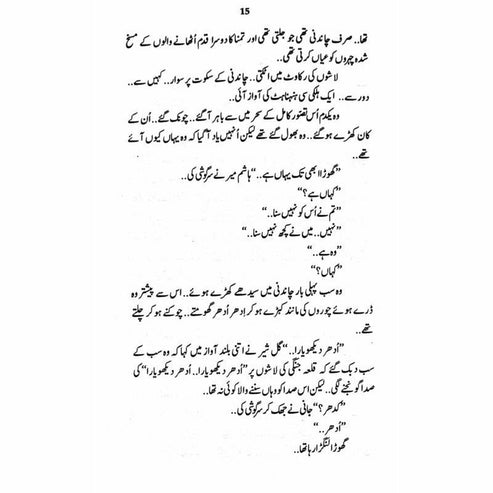 15
تھا.. صرف چاندنی تھی جو جلتی تھی اور تمنا کا دوسرا قدم اُٹھانے والوں کے مسخ
شدہ چہروں کو عیاں کرتی تھی..
لاشوں کی رکاوٹ میں اٹکتی.. چاندنی کے سکوت پر سوار.. کہیں سے..
دور سے.. ایک ہلکی سی ہنہناہٹ کی آواز آئی..
وہ یکدم اُس تصویرِ کامل کے سحر میں سے باہر آ گئے.. چونک گئے.. اُن کے
کان کھڑے ہو گئے.. وہ بھول گئے تھے لیکن اُنہیں یاد آ گیا کہ وہ یہاں کیوں آئے
تھے..
”گھوڑا ابھی تک یہاں ہے..“ ہاشم میر نے سرگوشی کی..
”کہاں ہے؟“
”تم نے اُس کو نہیں سنا..“
”نہیں.. میں نے کچھ نہیں سنا..“
”وہ ہے..“
”کہاں؟“
وہ سب پہلی بار چاندنی میں سیدھے کھڑے ہوئے.. اس سے پیشتر وہ
ڈرے ہوئے چوروں کی مانند کبڑے ہو کر اِدھر اُدھر گھومتے.. چوکنے ہو کر چلتے
تھے..
”اُدھر دیکھو یارا..“ گل شیر نے اتنی بلند آواز میں کہا کہ وہ سب کے
سب دبک گئے کہ قلعہ جنگی کی لاشوں پر ”اُدھر دیکھو یارا.. اُدھر دیکھو یارا“ کی
صدا گونجنے لگی.. لیکن اس صدا کو وہاں سننے والا کوئی نہ تھا..
”کدھر؟“ جانی نے جھک کر سرگوشی کی..
”اُدھر..“
گھوڑا لنگڑا رہا تھا..